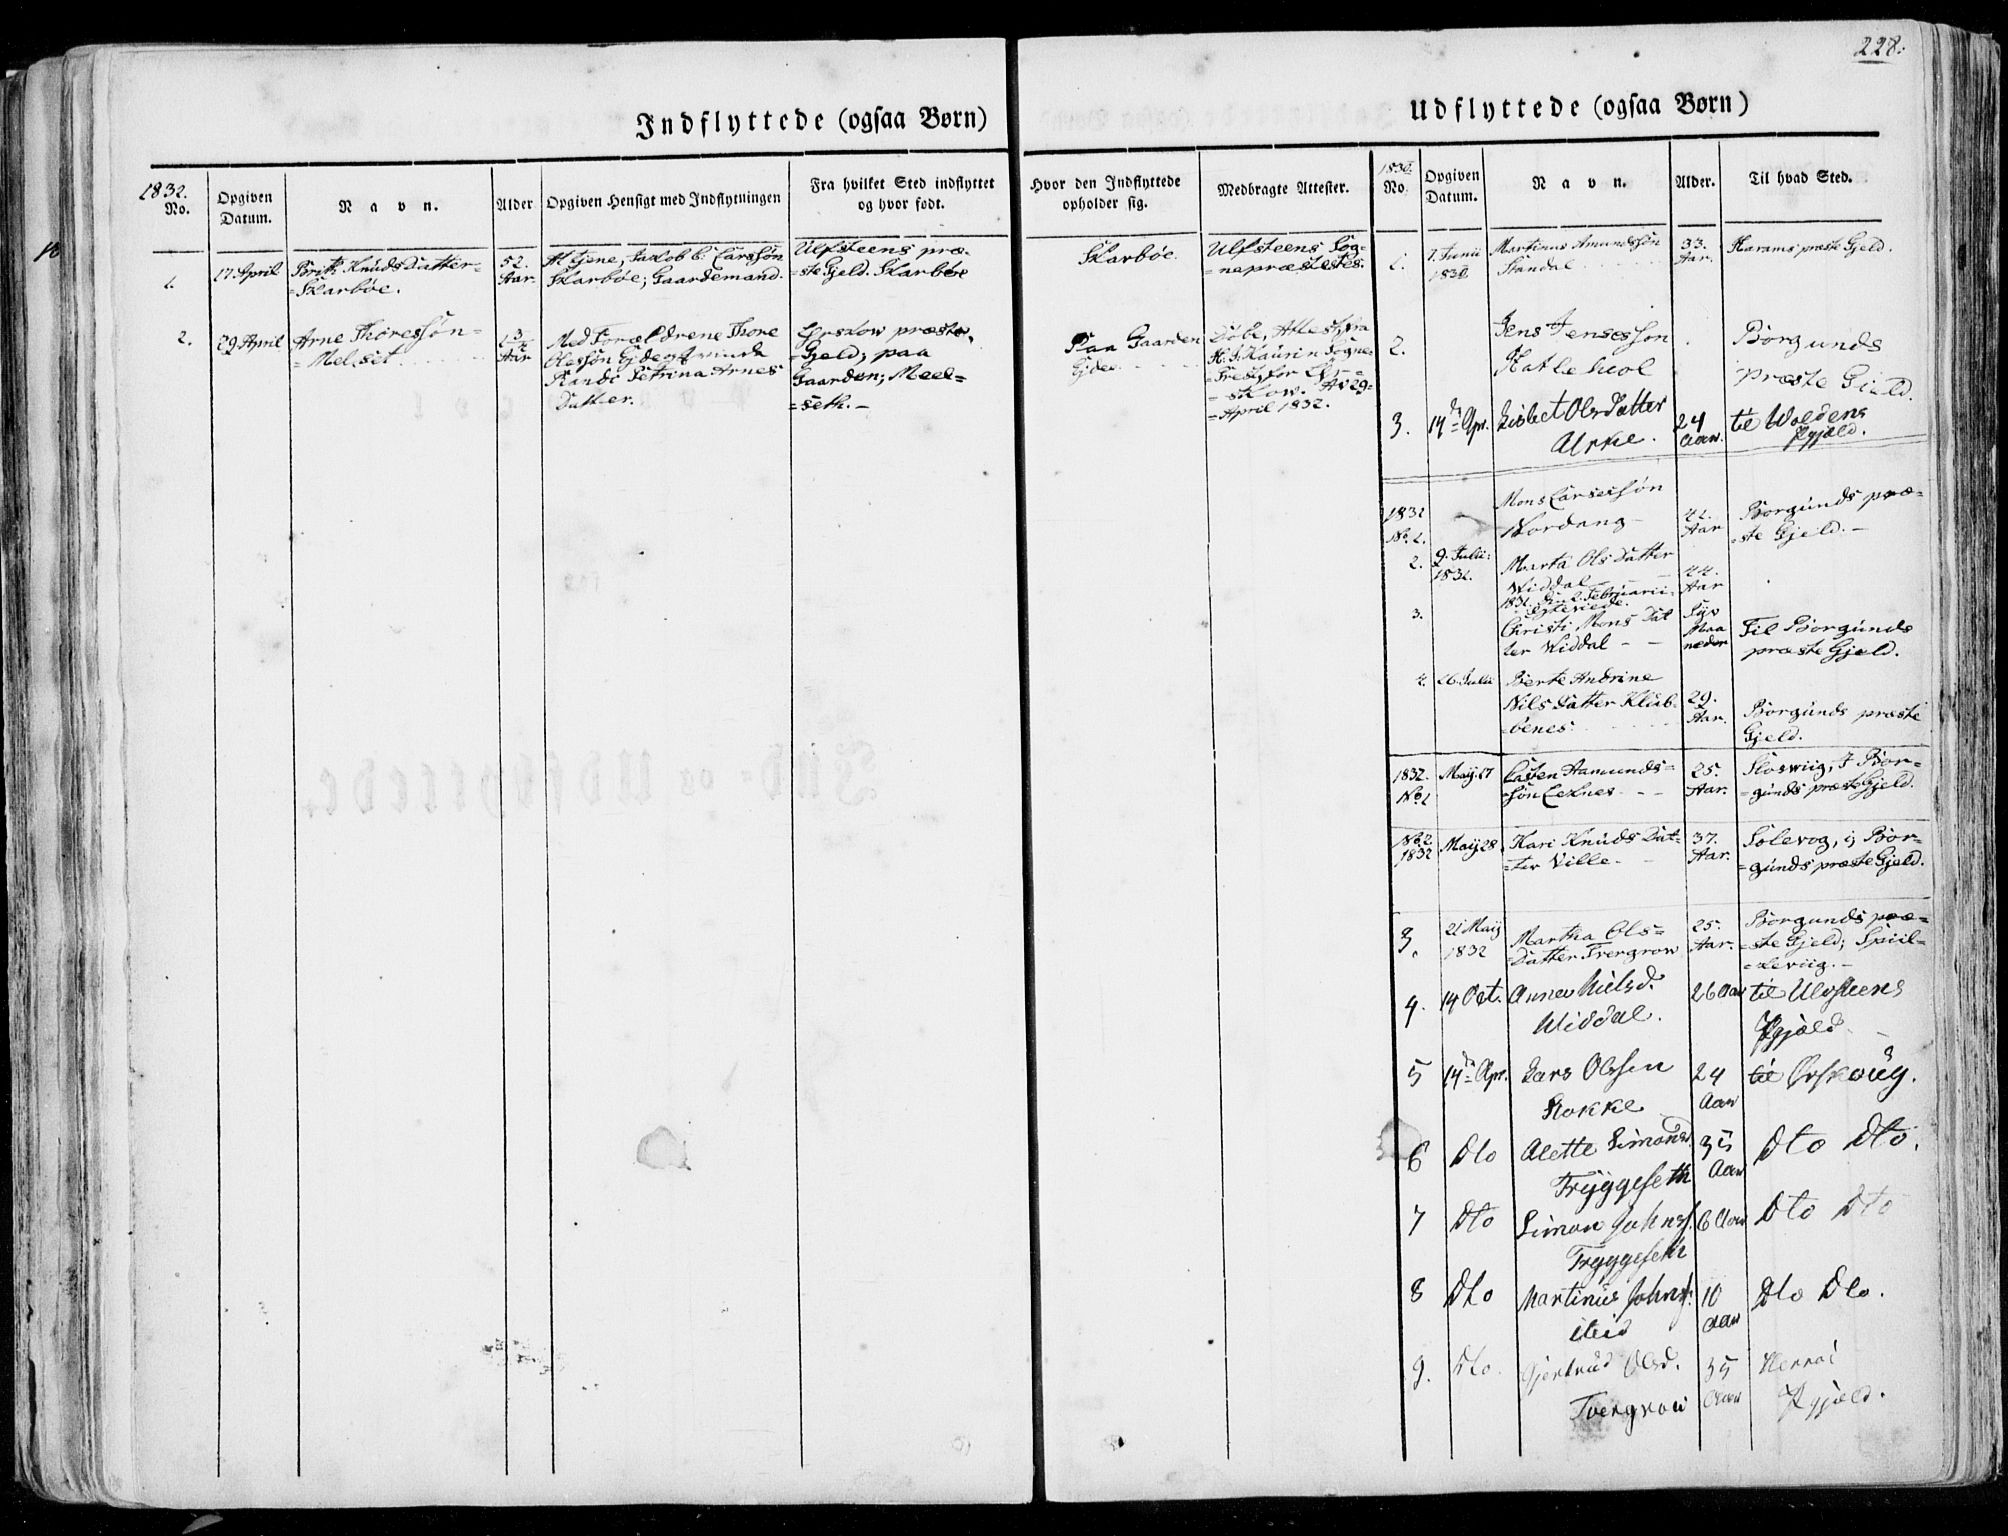 228.
Indflyttede (ogsaa Børn)
Udflyttede (ogsaa Børn)
1832.
No.
Opgiven
Datum.
Navn.
Alder
Opgiven Hensigt med Indflytningen
Fra hvilket Sted indflyttet
og hvor født.
Hvor den Indflyttede
opholder sig.
Medbragte Attester.
1.
17. April
Brit Knuds Datter=
=Skarbøe.
52.
Aar.
At tjene, Jacob C. Larssøn
Skarbøe, Gaardemand.
Ulfsteens præ=
=ste Gjeld. Skarbøe
Skarbøe.
Ulfsteens Sog=
=nepræstes
2.
29 April
Arne Thoressøn=
=Melset
Aar
Med Foræld<wbr>rene Thore
Olessøn Gjde og
Randi Petrina Arnes
Datter.
Ørskow præste=
=Gjeld; paa
Gaarden; Meel=
=seth.-
Paa Gaarden
Gjde
Døbe, Attest, fra
=April 1832.
No.
Opgiven
Datum.
Navn.
Alder.
Til hvad Sted.
1.
1. Junii
Martinus Amundssøn
Standal
33.
Aar.
Harams præste Gjeld.
2.
Jens Jensessøn
Hatlehiol
Borgunds
præste Gjeld.
3.
14 Apr.
Lisbet Olsdatter
Urke.
24
Aar.
til Woldens
Pgjæld.
Mons Larsessøn
Nordang-
42.
Aar
Borgunds præ=
=ste Gjeld.-
2.
9. Julii
Marta Ols Datter
Widdal
44.
Aar
3.
Christi Mons Dat
ter Widdal - -
Syv
Maa
neder
Til Borgunds
præste Gjeld.
4.
26. Julii
Berte Andrine
Nils Datter Klub-
=benes
29.
Aar.
Borgunds præste
Gjeld.
1832.
No. 1
Maij. 17
Casten Aamunds=
=søn Leknes - -
25.
Aar.
Sloswiig, i Bor=
=gunds præste Gjeld.
No. 2
1832
Maij 28
Kari Knuds Dat=
=ter Ville-
37.
Aar.
Solevog, ij Bor=
=gunds præste Gjeld.
3.
21 Maij
1832
Martha Ols=
=Datter Tvergrow
25.
Aar.
Borgunds præ=
=ste Gjeld; Spiil=
=keviig.-
4.
14 Oct.
Anne Nielsd.
Widdal.
26 Aar
til Ulfsteens
Pgjæld.
5
14 Apr.
Lars Olsen
Stokke
24
Aar
til Ørskoug.
6
Dto
Alette Simonsd.
Tryggeseth
35
Aar
Dto Dto.
7
Dto
Simon Johns.
Tryggeseth
6 Aar
Dto Dto
8
Dto
Martinus Johns.
Eid
10
Aar
Dto Dto.
9.
Dto.
Gjertrud Olsd.
Tvergrow
35
Aar
Herrøe
Pgjæld.